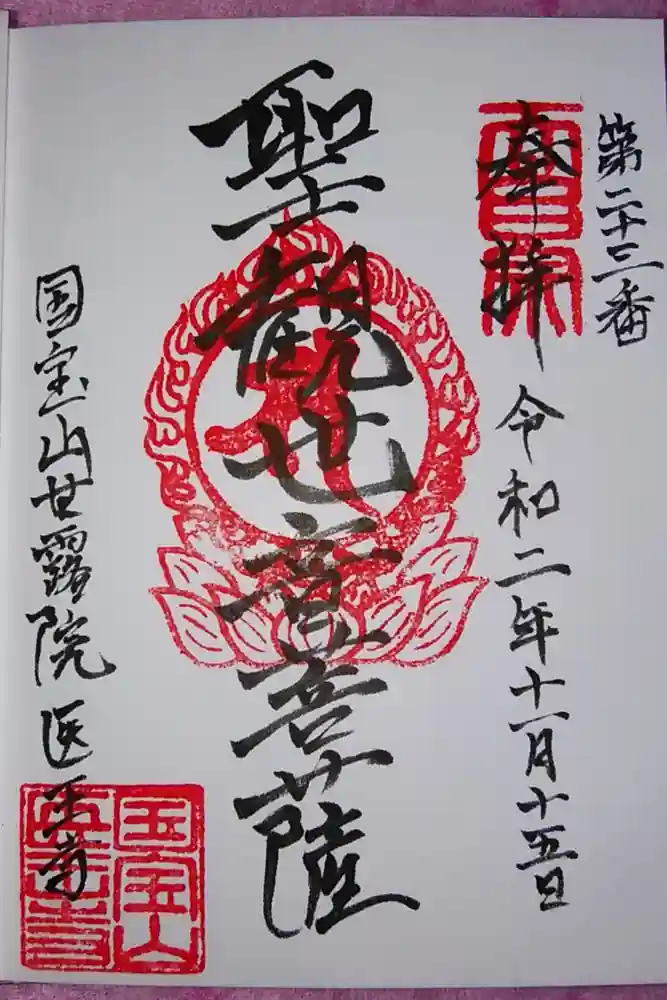 第二十三番
奉拝
令和二年十一月十五日
聖観世音菩薩
国宝山甘露院 医王寺
国宝山
医王寺